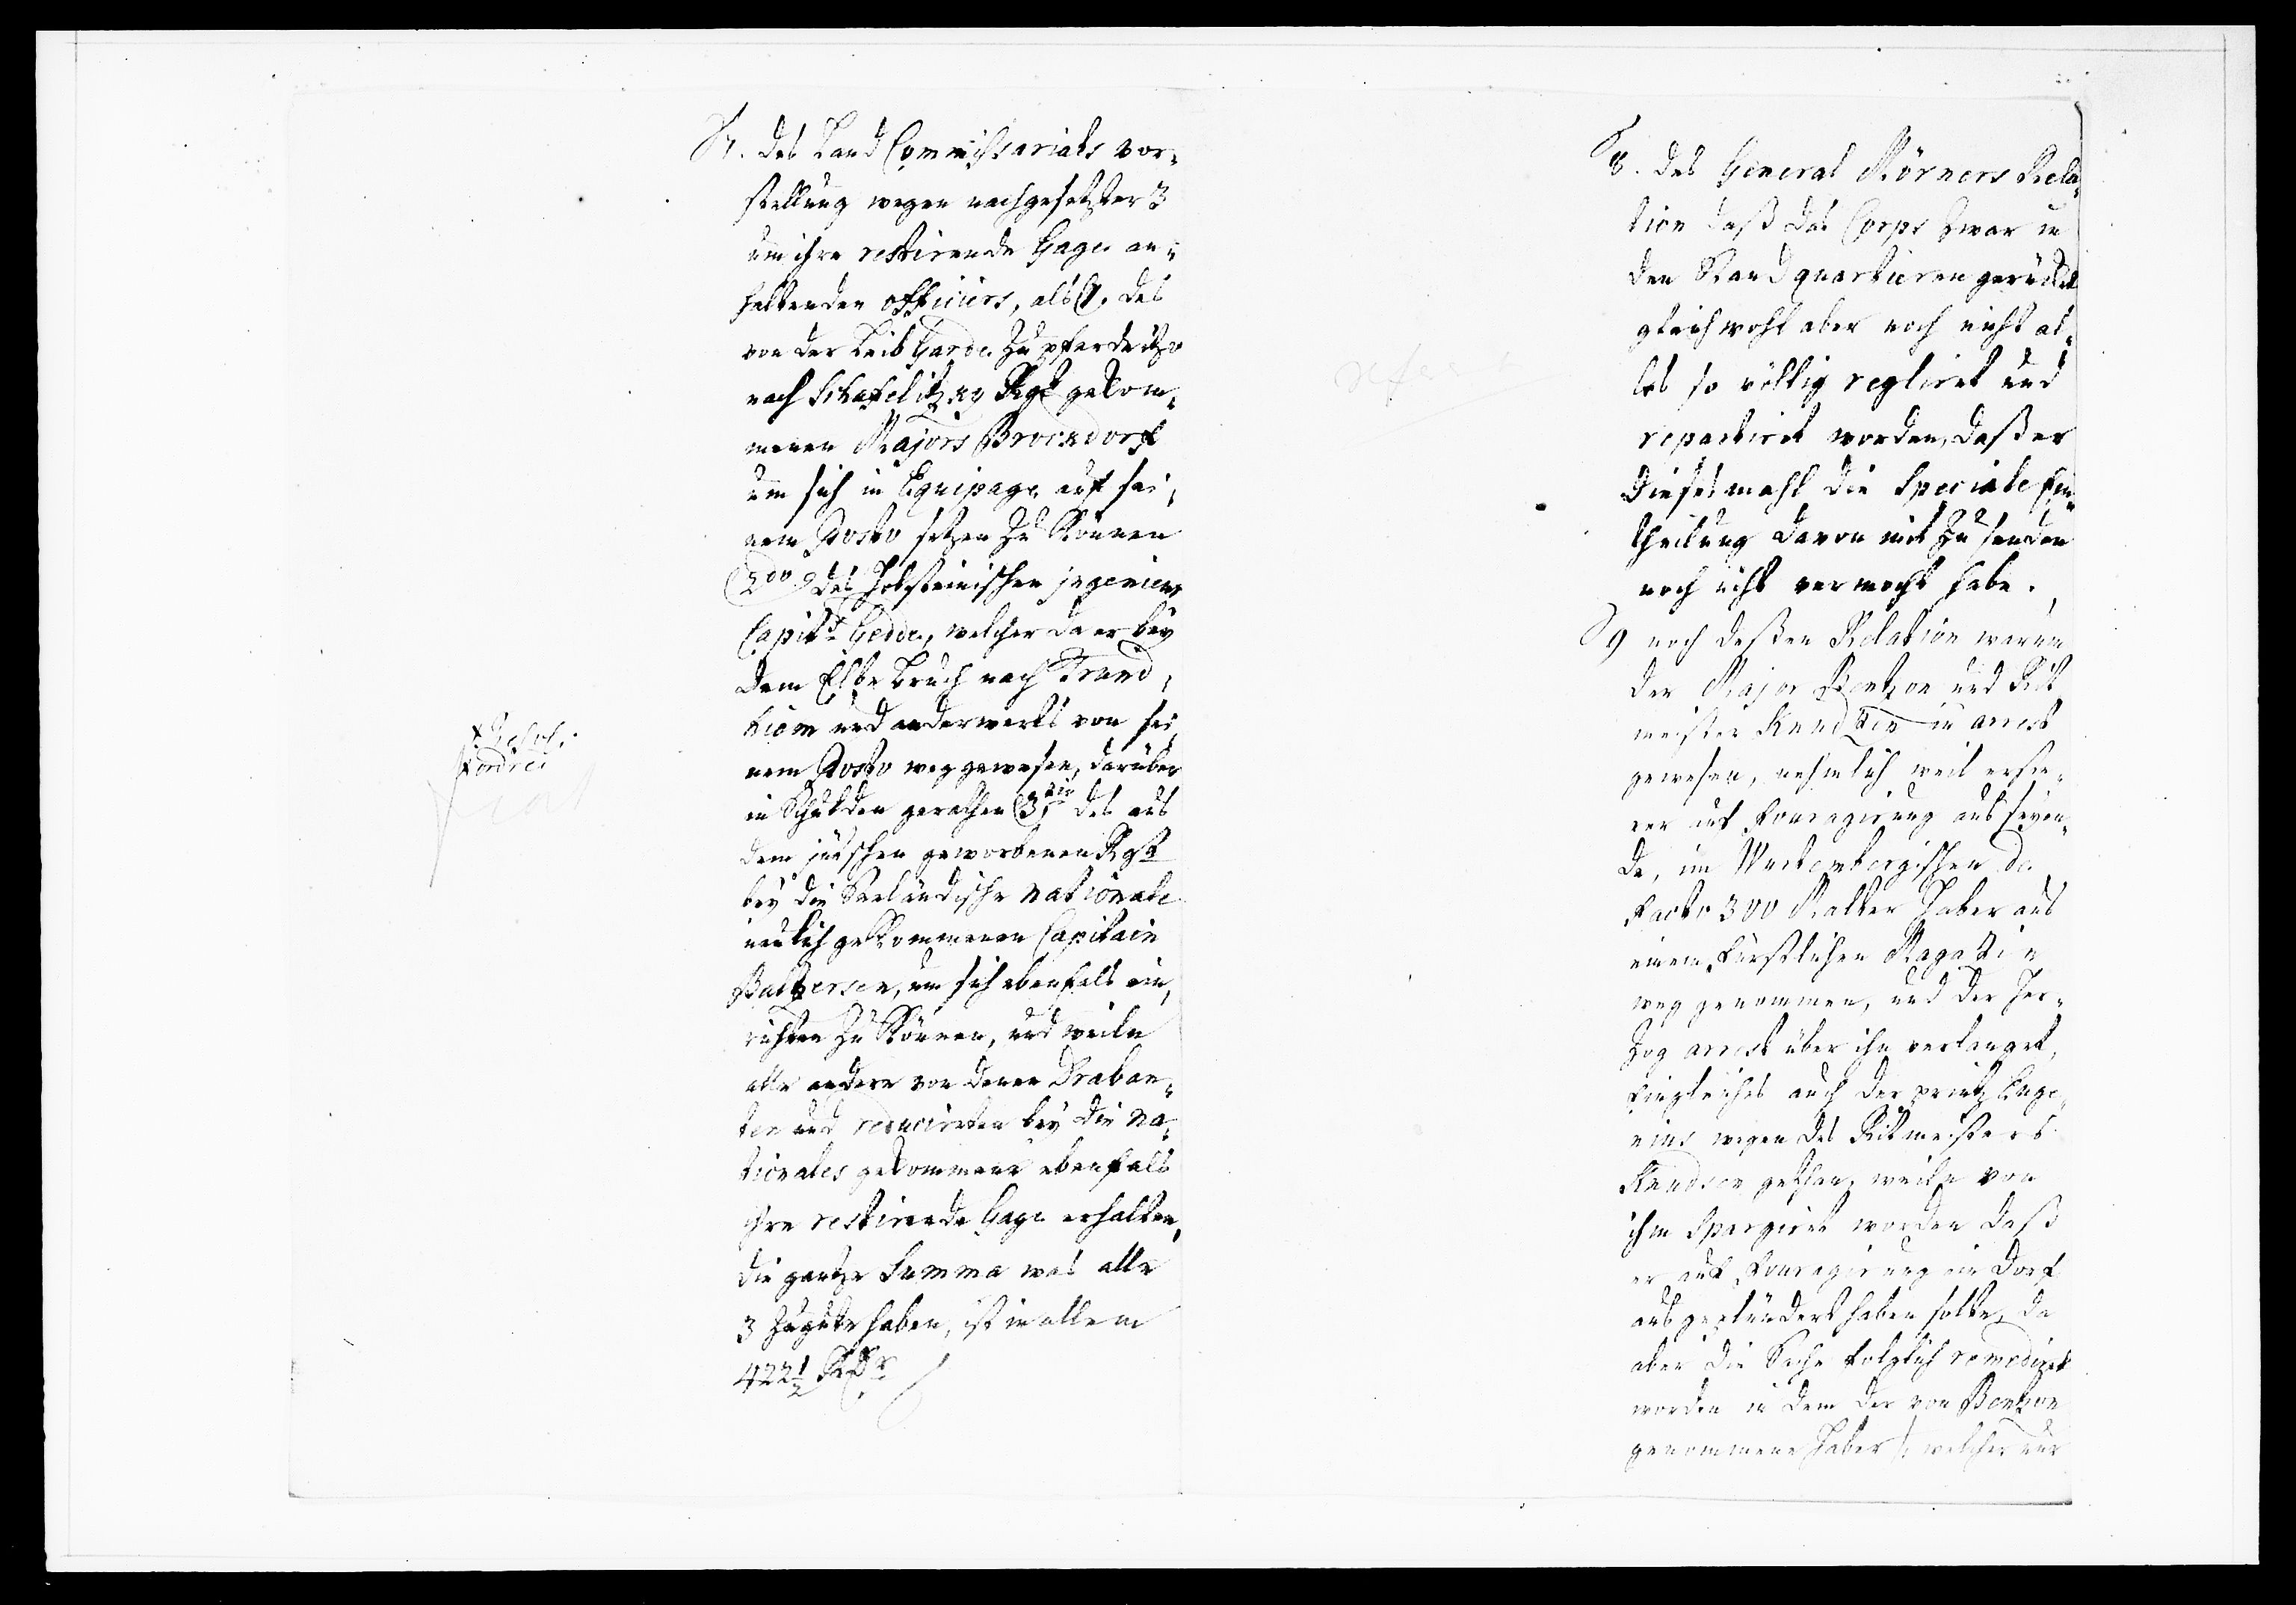 7. des Land Commissariats vor-
stellung wegen nachgesetzter 3
um ihre restirende Gage an-
haltenden officiers, als 1. des
von der Leib Garde zu pferde itzo
nach Schafelitzky Rgt gekom-
menen Majors Brockdorf
um sich in Equipage auf sei-
nem Posto setzen zu können
2do des Holsteinischen jngenieur
Capit: Gedde, welcher da er bey
dem Elbe bruch nach Trund-
hiem und anderwerts von sei-
nem Posto weg gewesen, darüber
in Schulden gerathen 3tio des aus
dem jütschen geworbenen Rgt
bey die Seeländische nationale
neulich gekommenen Capitain
Baltzersen, um sich ebenfals ein-
richten zu können, und weiln
alle andere von denen Draban-
ten und reducirten bey die na-
tionales gekommene ebenfals
ihre restirende Gage erhalten,
die gantze Summa was alle
3 zugute haben, ist in allem
422½ Rdr
x Resol:
x ordre
fiat
8. des General Mörners Rela-
tion daß das Corps zwar in
den Standquartieren gerücket
gleichwohl aber noch nicht al-
les so völlig regliret und
repartiret worden, daß er
diesesmahl die Speciale Ein-
theilung davon mit zu senden
noch nicht vermocht habe.
9 noch deßen Relation warum
der Major Bentzon und Rit
meister Knudsen in arrest
gewesen, nehmlich weil erste-
rer auf Fouragirung aus seyen-
de, im Wurtembergischen de
facto 300 Malter Haber aus
einem Fürstlichen Magazin
weg genommen, und der Her-
zog arrest über ihn verlanget,
eingleiches auch der printz Euge-
nius wegen des Ritmeisters
Knudsen gethan, weiln von
ihm spargiret worden daß
er auf Fouragirung ein Dorf
ausgeplündert haben solte, da
aber die Sache folglich remediret
worden in dem der von Bentzon
genommene Haber /: welcher nur